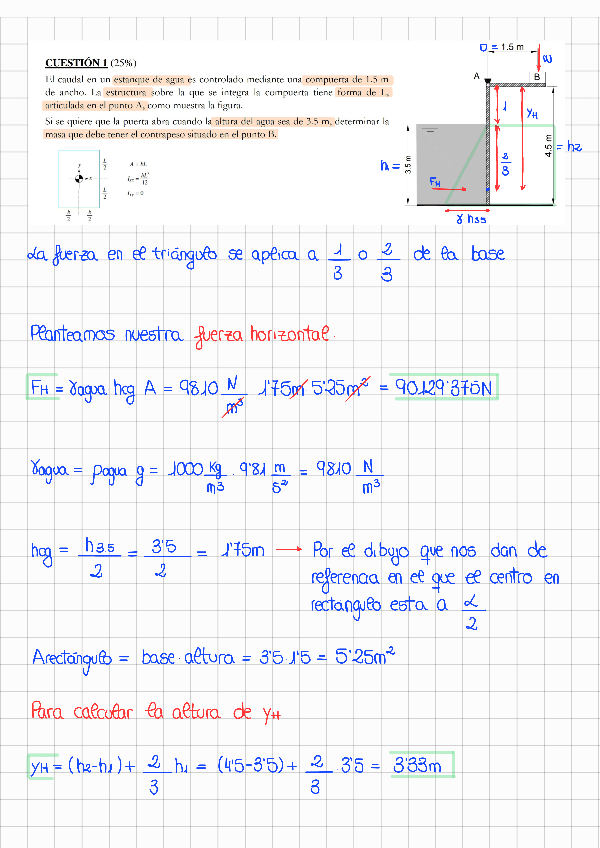 CUESTIÓN 1 (25%)
El caudal en un estanque de agua es controlado mediante una compuerta de 1.5 m
de ancho. La estructura sobre la que se integra la compuerta tiene forma de L,
articulada en el punto A, como muestra la figura.
Si se quiere que la puerta abra cuando la altura del agua sea de 3.5 m, determinar la
masa que debe tener el contrapeso situado en el punto B.
D = 1.5 m
W
A
B
1
yH
4.5 m
= h2
h =
3.5 m
2
3
FH
γ h3.5
La fuerza en el triángulo se aplica a 1/3 o 2/3 de la base
Planteamos nuestra fuerza horizontal.
FH = γagua hcg A = 9810 N/m³ 1'75m 5'25m² = 90.129'375N
γagua = ρagua g = 1000 Kg/m3 · 9'81 m/s² = 9810 N/m³
hcg = h3.5/2 = 3'5/2 = 1'75m → Por el dibujo que nos dan de
referencia en el que el centro en
rectángulo esta a L/2
Arectángulo = base · altura = 3'5 · 1'5 = 5'25m²
Para calcular la altura de yH
yH = (h2-h1) + 2/3 h1 = (4'5-3'5) + 2/3 3'5 = 3'33m